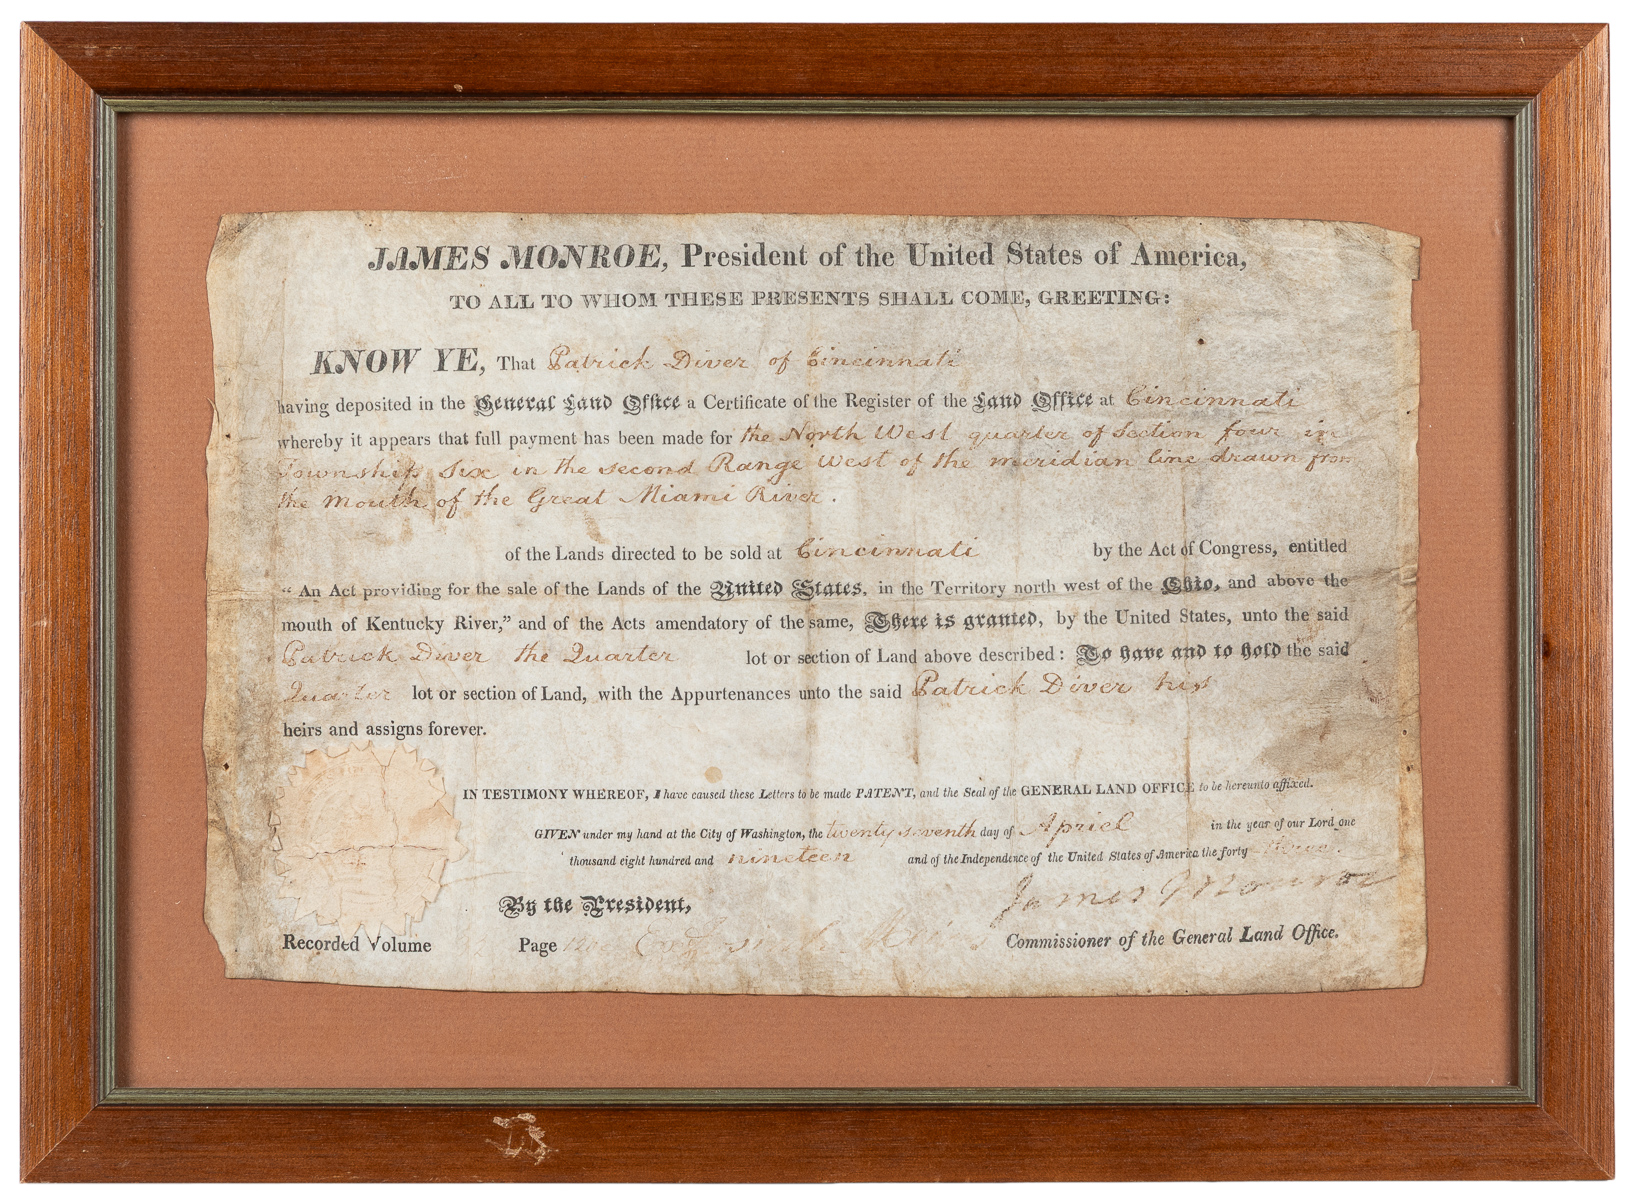 JAMES MONROE, President of the United States of America,
TO ALL TO WHOM THESE PRESENTS SHALL COME, GREETING:
KNOW YE, That Patrick Diver of Cincinnati
having deposited in the General Land Office a Certificate of the Register of the Land Office at Cincinnati
whereby it appears that full payment has been made for the North West quarter of Section four in
Township six in the second Range West of the meridian line drawn from
the Mouth of the Great Miami River.
of the Lands directed to be sold at Cincinnati by the Act of Congress, entitled
“An Act providing for the sale of the Lands of the United States, in the Territory north west of the Ohio, and above the
mouth of Kentucky River,” and of the Acts amendatory of the same, There is granted, by the United States, unto the said
Patrick Diver the Quarter lot or section of Land above described: To have and to hold the said
Quarter lot or section of Land, with the Appurtenances unto the said Patrick Diver his
heirs and assigns forever.
IN TESTIMONY WHEREOF, I have caused these Letters to be made PATENT, and the Seal of the GENERAL LAND OFFICE to be hereunto affixed.
GIVEN under my hand at the City of Washington, the twenty seventh day of Apriel in the year of our Lord one
thousand eight hundred and nineteen and of the Independence of the United States of America the forty third.
James Monroe
By the President,
Recorded Volume Page Commissioner of the General Land Office.